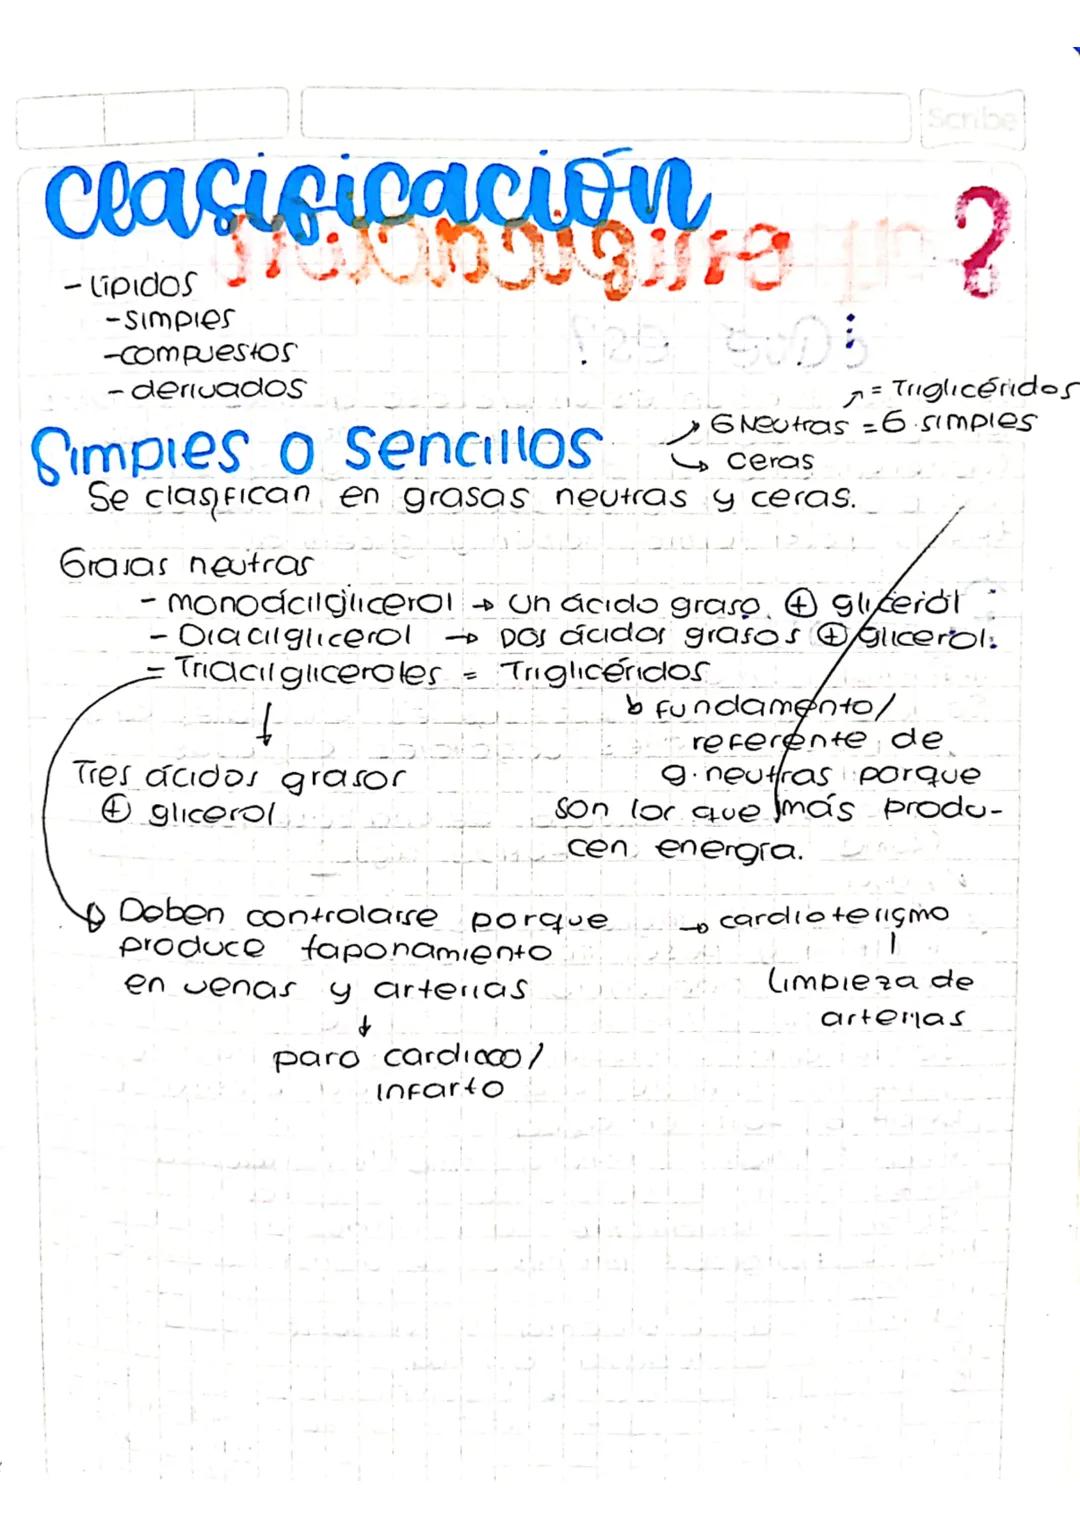 Scribe
Clasificación
- Lípidos
- simples
- compuestos
- derivados
= Triglicéridos
G Neutras = G. simples
ceras
Simples o sencillos
Se clasifican en grasas neutras y ceras.
Grasas neutras
- monoacilglicerol → Un ácido graso ⊕ glicerol
- Diacilglicerol → Dos ácidos grasos ⊕ glicerol.
= Triacilgliceroles = Triglicéridos
↓
fundamento/
referente de
Tres ácidos grasos
g. neutras porque
⊕ glicerol
son los que más produ-
cen energía.
Deben controlarse porque → cardioterismo
produce taponamiento
en venas y arterias
Limpieza de
arterias
↓
paro cardiaco/
infarto